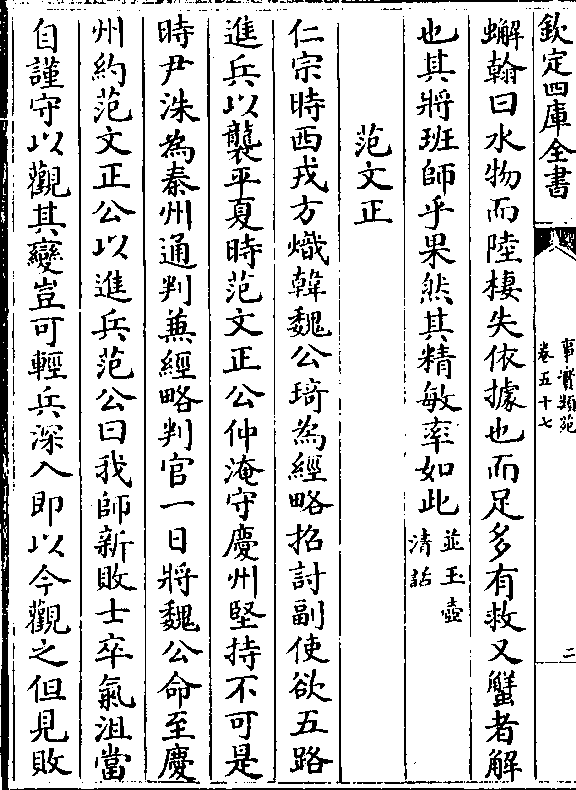 欽定四庫全書
事實類苑
卷五十七
二
蠏翰曰水物而陸棲失依據也而足多有救又蟹者解
也其將班師乎果然其精敏率如此並玉壺
清話
范文正
仁宗時西戎方熾韓魏公琦為經略招討副使欲五路
進兵以襲平夏時范文正公仲淹守慶州堅持不可是
時尹洙為秦州通判兼經略判官一日將魏公命至慶
州約范文正公以進兵范公曰我師新敗士卒氣沮當
自謹守以觀其變豈可輕兵深入即以今觀之但見敗